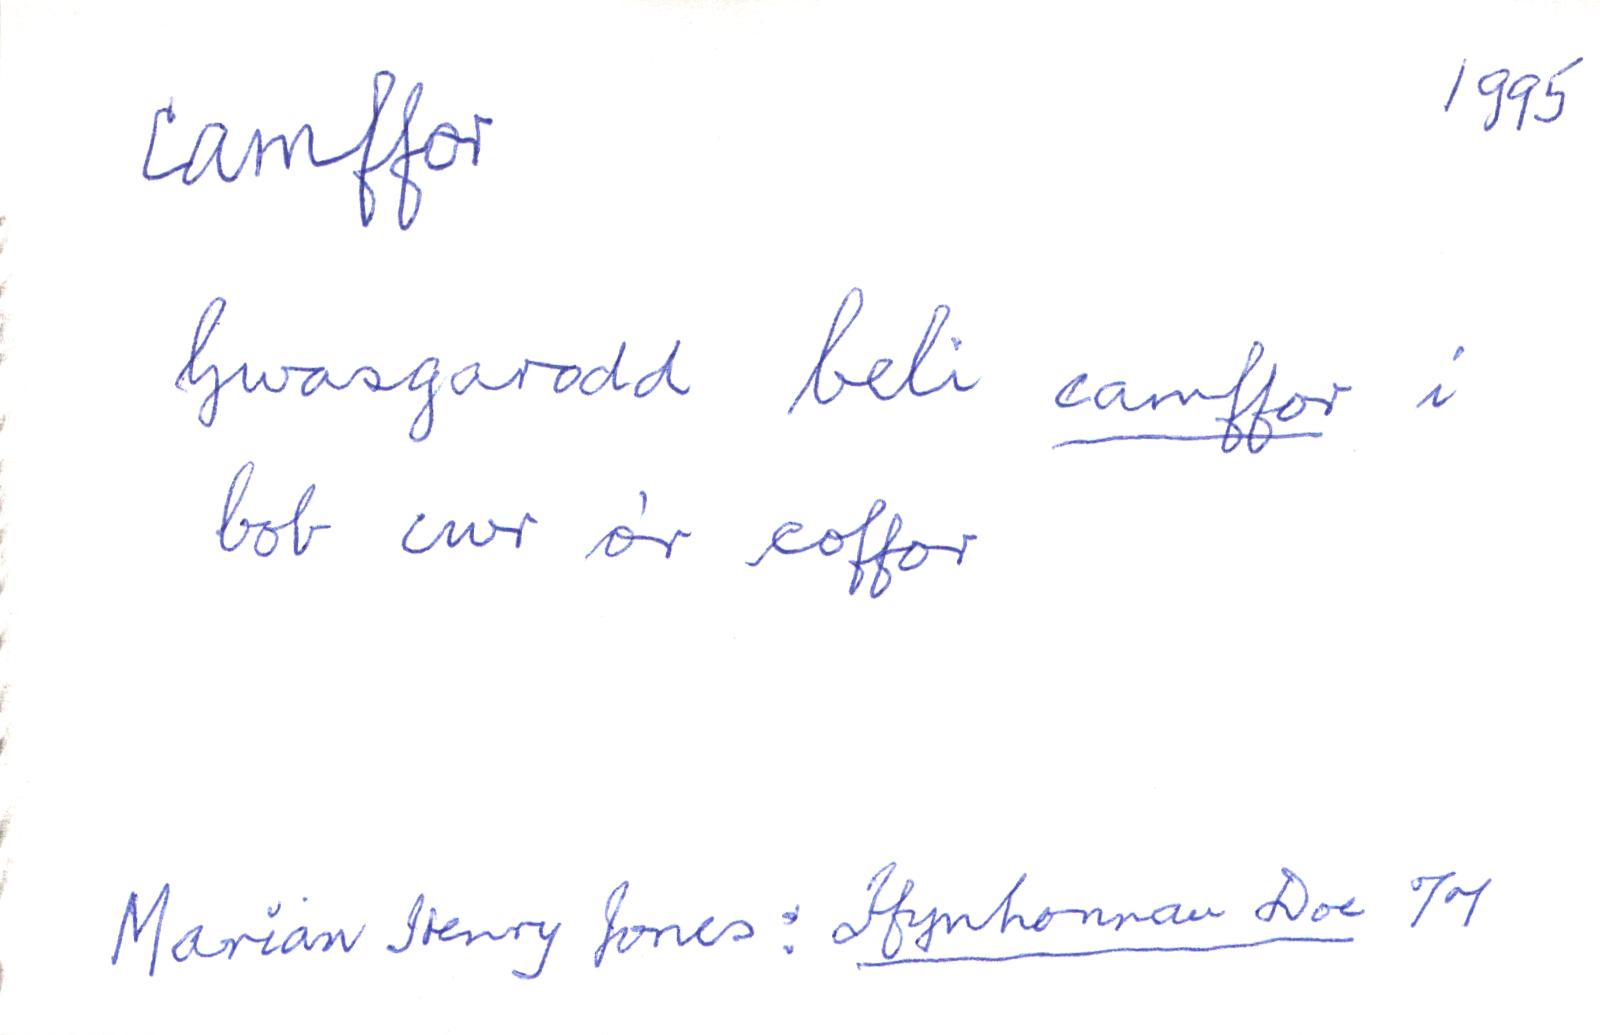 camffor 1995
Gwasgarodd beli camffor i
bob cwr o'r coffor
Marian Henry Jones: Ffynhonnau Doe